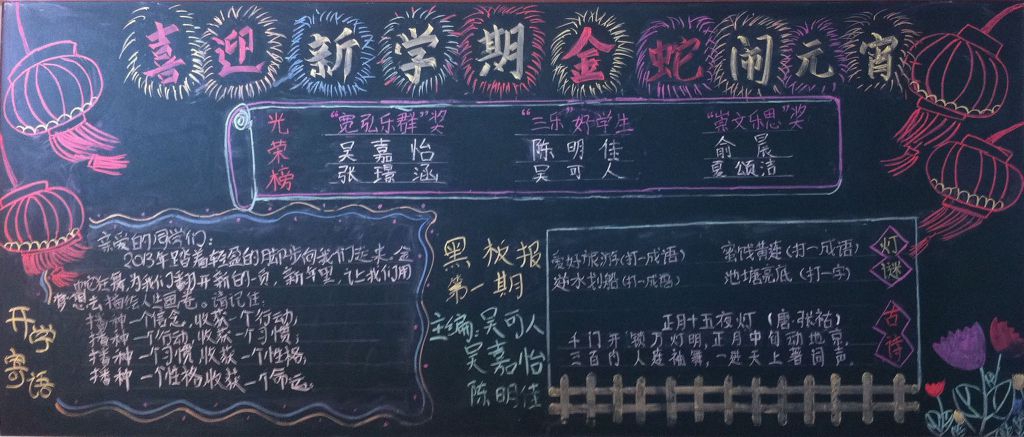 喜迎新学期金蛇闹元宵
光荣榜
"宽弘乐群"奖 "三乐"好学生 "崇文乐思"奖
吴嘉怡 陈明佳 俞晨
张璟涵 吴可人 夏颂洁
亲爱的同学们:
2013年踏着轻盈的脚步向我们走来。金
蛇狂舞,为我们翻开新的一页,新年里,让我们用
梦想去描绘人生画卷。请记住:
播种一个信念,收获一个行动;
播种一个行动,收获一个习惯;
播种一个习惯,收获一个性格;
播种一个性格,收获一个命运。
开学寄语
黑板报
第一期
主编:吴可人
吴嘉怡
陈明佳
爱好旅游(打一成语) 蜜饯黄连(打一成语)
逆水划船(打一成语) 池塘亮底(打一字)
灯谜
正月十五夜灯(唐·张祜)
千门开锁万灯明,正月中旬动地京.
三百内人连袖舞,一进天上著词声.
古诗